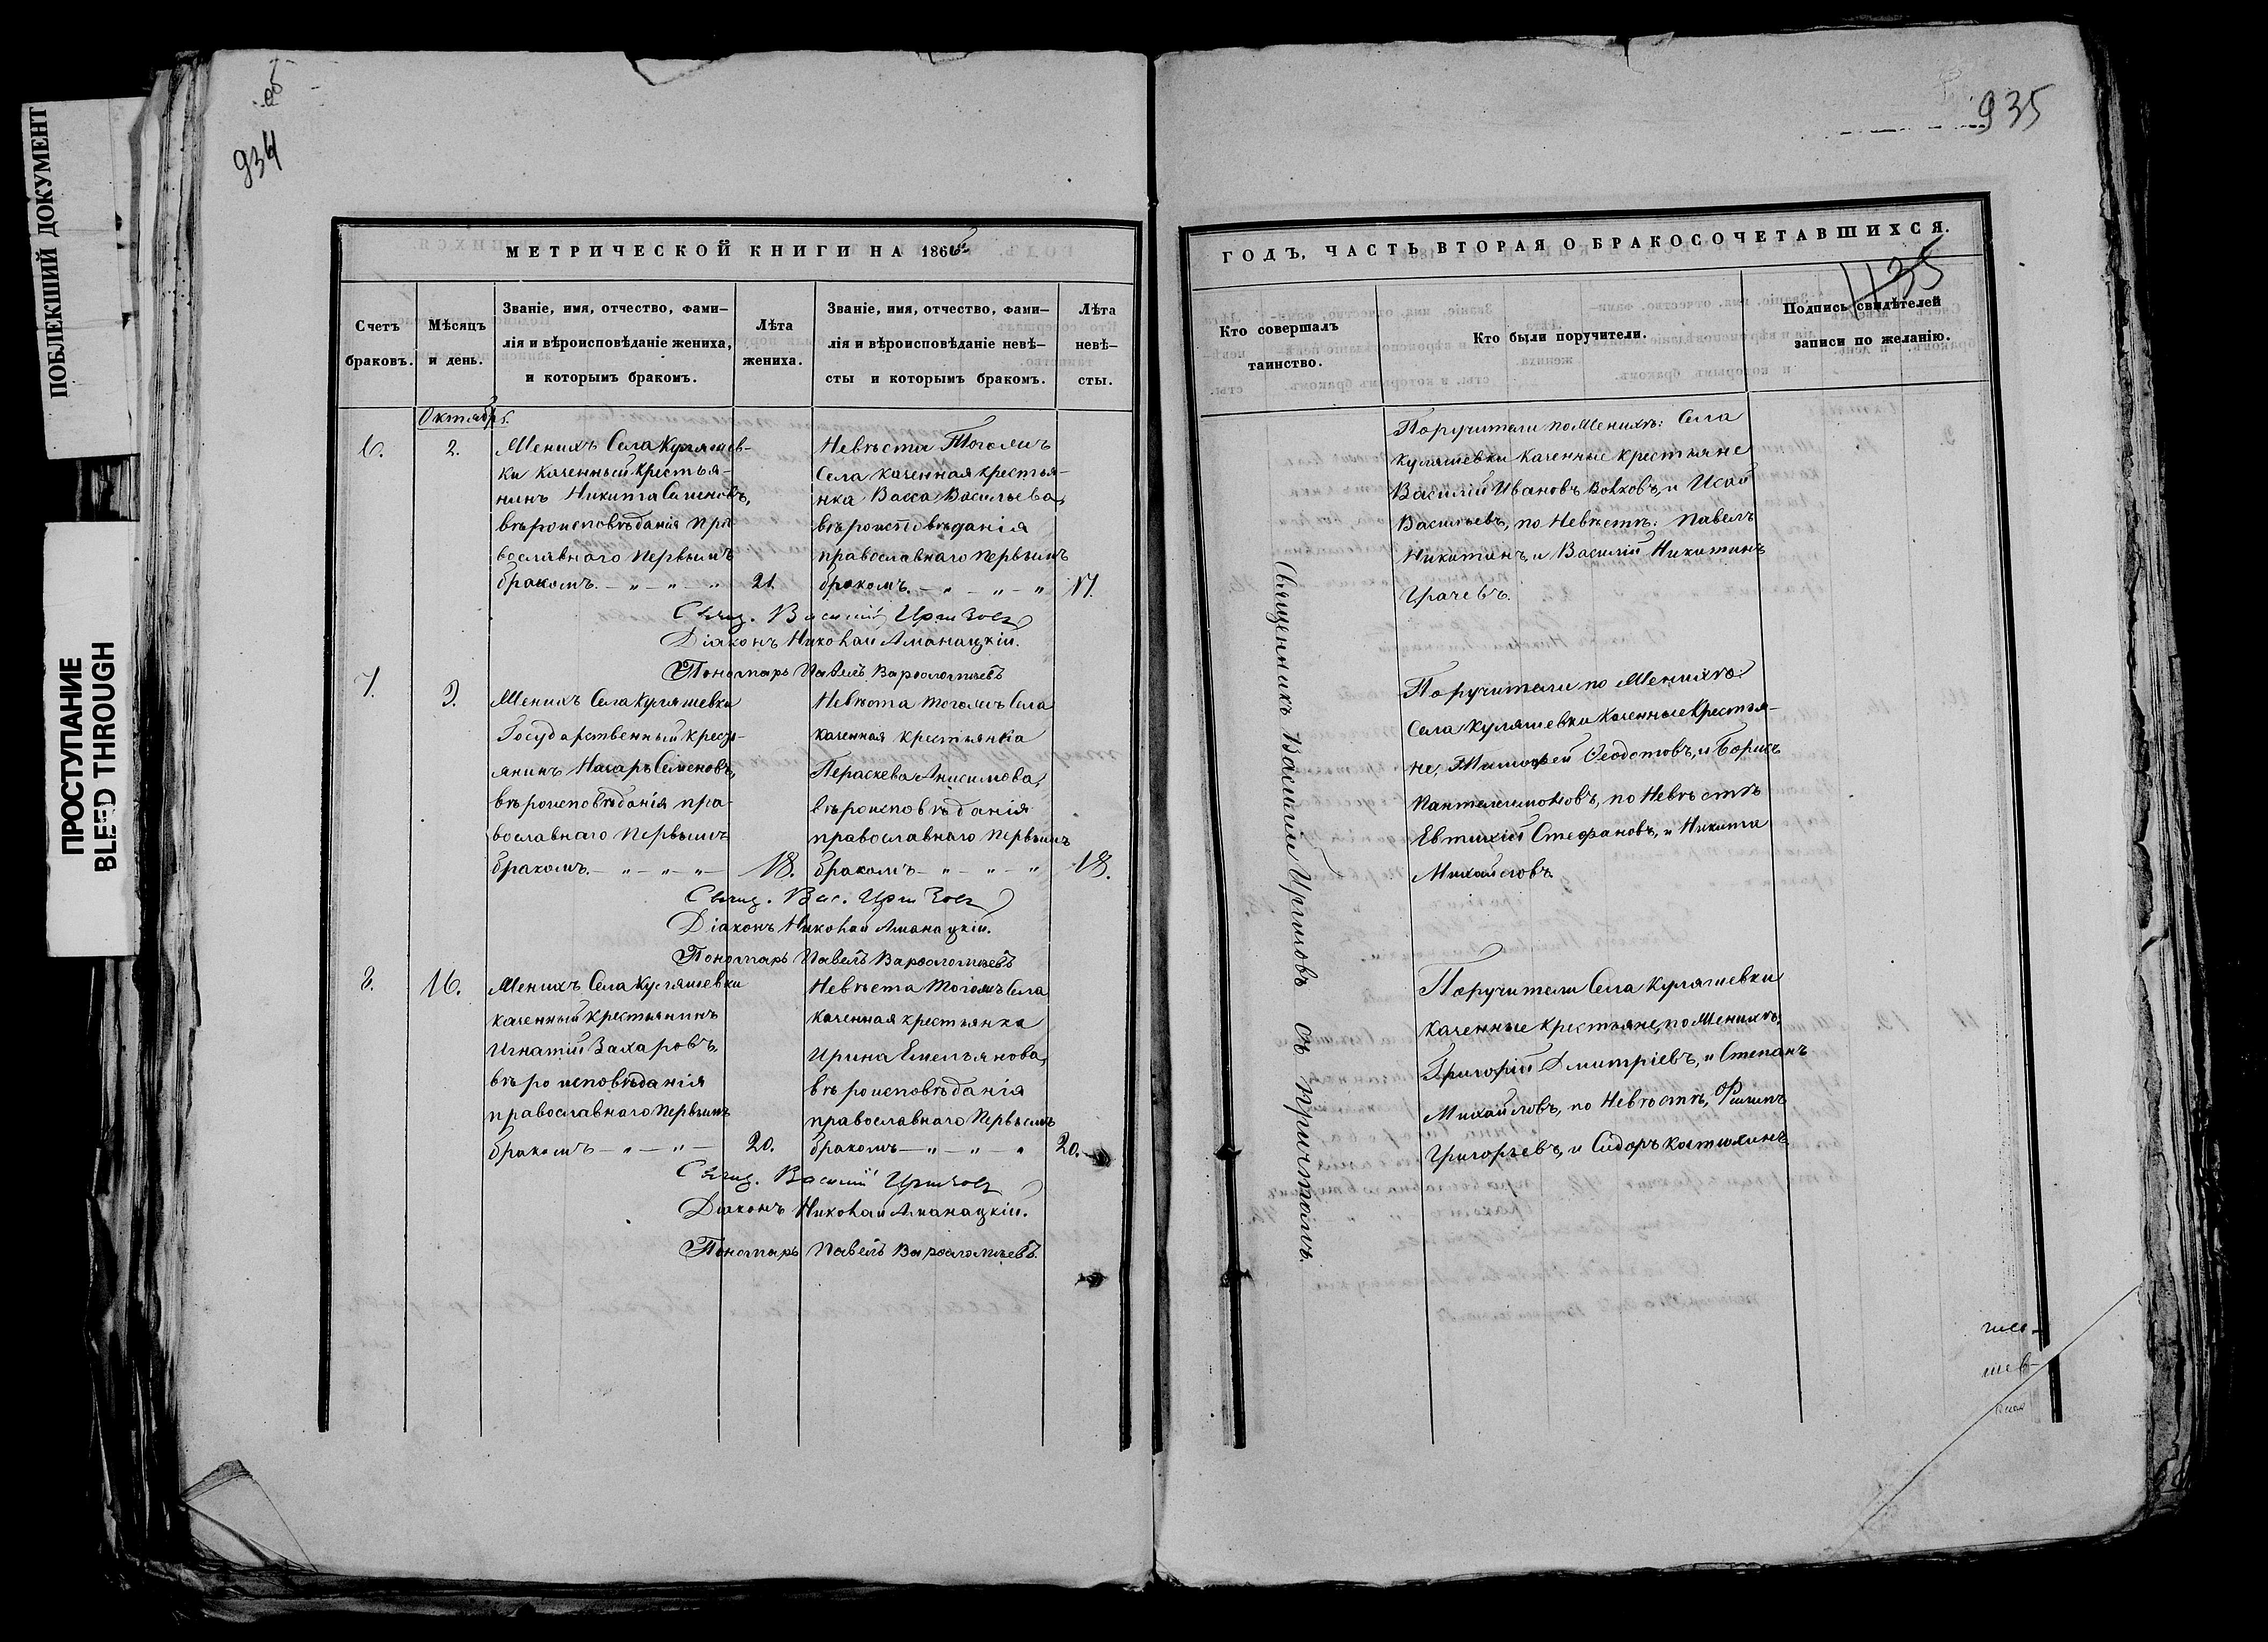 ПОБЛЕКШИЙ ДОКУМЕНТ
ПРОСТУПАНИЕ
BLEED THROUGH
934
935
МЕТРИЧЕСКОЙ КНИГИ НА 1866
Счетъ браковъ.
Мѣсяцъ и день.
Званіе, имя, отчество, фами-
лія и вѣроисповѣданіе жениха,
и которымъ бракомъ.
Лѣта жениха.
Званіе, имя, отчество, фами-
лія и вѣроисповѣданіе невѣ-
сты и которымъ бракомъ.
Лѣта невѣ-
сты.
Октябрь.
6.
2.
Женихъ Села Куляшев-
ки казенный крестья-
нинъ Никита Семеновъ,
вѣроисповѣданія пра
вославнаго первымъ
бракомъ. — „ — „ — „
21.
Невѣста Тогожъ
Села казенная крестья-
нка Васса Васильева,
вѣроисповѣданія
православнаго первымъ
бракомъ. — „ — „ — „
17.
Свящ. Василій
Діаконъ Николай Аманацкій.
Пономарь Павелъ Варѳоломѣевъ
7.
9.
Женихъ Села Куляшевки
Государственный кресть-
янинъ Назаръ Семеновъ,
вѣроисповѣданія пра-
вославнаго первымъ
бракомъ. — „ — „ — „ —
18.
Невѣста тогожъ Села
казенная крестьянка
Параскева Анисимова,
вѣроисповѣданія
православнаго первымъ
бракомъ — „ — „ — „
18.
Свящ. Вас.
Діаконъ Николай Аманацкій.
Пономарь Павелъ Варѳоломѣевъ
8.
16.
Женихъ Села Куляшевки
казенный крестьянинъ
Игнатій Захаровъ,
вѣроисповѣданія
православнаго первымъ
бракомъ — „ — „ —
20.
Невѣста тогожъ Села
казенная крестьянка
Ирина Емельянова,
вѣроисповѣданія
православнаго первымъ
бракомъ — „ — „ — „
20.
Свящ. Василій
Діаконъ Николай Аманацкій.
Пономарь Павелъ Варѳоломѣевъ.
ГОДЪ, ЧАСТЬ ВТОРАЯ О БРАКОСОЧЕТАВШИХСЯ.
1135
Кто совершалъ
таинство.
Кто были поручители.
Подпись свидѣтелей
записи по желанію.
Священникъ Василій съ причтомъ.
Поручители по Женихѣ: Села
Куляшевки казенные крестьяне
Василій Ивановъ Волковъ, и Исай
Васильевъ, по Невѣстѣ: Павелъ
Никитинъ, и Василій Никитинъ
Грачевъ.
Поручители по Женихѣ:
Села Куляшевки казенные крестья-
не, Тимофей Ѳеодотовъ, и Борисъ
Пантелеимоновъ, по Невѣстѣ
Евтихій Стефановъ, и Никита
Михайловъ.
Поручители Села Куляшевки
казенные крестьяне, по Женихѣ,
Григорій Дмитріевъ, и Степанъ
Михайловъ, по Невѣстѣ, Филипъ
Григорьевъ, и Сидоръ Костюхинъ
шев-